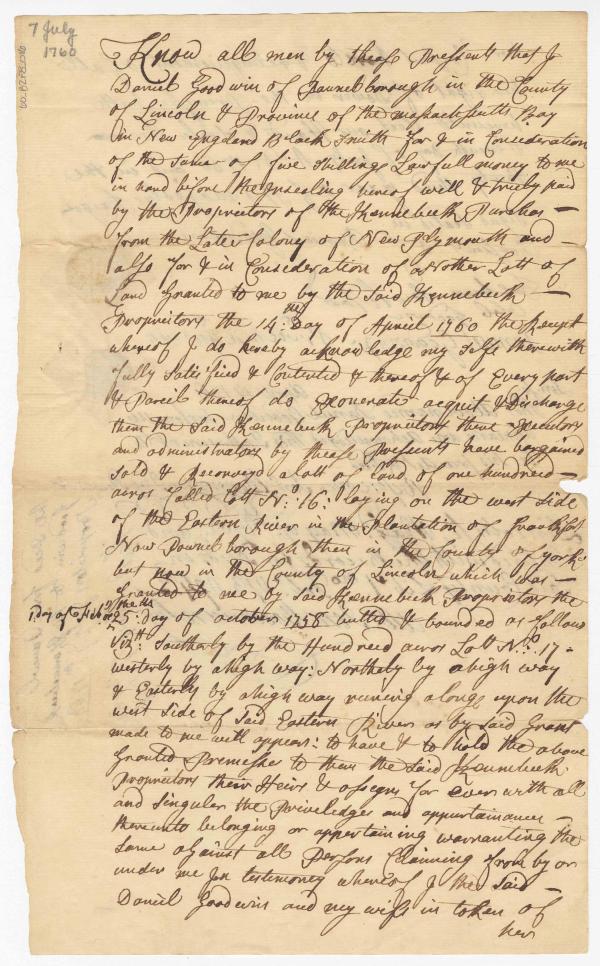 7 July
1760
Know all men by these Pressents that I
Daniel Goodwin of Pownelborough in the County
of Lincoln & Province of the massachusetts Bay
in New England Black Smith for & in Consideration
of the Sume of five Shillings Lawfull money to me
in hand before the Insealing hereof will & truely paid
by the Proprietors of the Kennebeck Purchas —
from the Late Colony of New Plymouth and —
also for & in Consideration of another Lott of
Land Granted to me by the Said Kennebeck —
Proprietors the 14: day of April 1760 the Receipt
whereof I do hereby acknowledge my Selfe therewith
fully Satisfied & Contented & thereof & of Every part
& Parcel thereof do Exonerate acquit & Discharge
them the Said Kennebeck Proprietors there Executors
and administrators by these Pressents have bargained
Sold & Reconveyd a Lott of Land of one hundred —
acres Called Lott No. 16: laying on the west Side
of the Eastern River in the Plantation of Frankfort
Now Pownelborough then in the County of york
but now in the County of Lincoln which was —
Granted to me by Said Kennebeck Proprietors the
25: day of october 1758 butted & bounded as follows
Vizt: Southerly by the Hundred acres Lott No: 17 -
westerly by a high way: Northerly by a high way
& Easterly by a high way runing alonge upon the
west Side of Said Eastern River as by Said Grant
made to me will appear: to have & to hold the above
Granted Premesses to them the Said Kennebeck
Proprietors their Heirs & assigns for Ever with all
and Singular the Priveledges and appurtainance —
thereunto belonging or appertaining warranting the
Same against all Persons Claiming from by or
under me In testimoney whereof I the Said —
Daniel Goodwin and my wife in token of
her